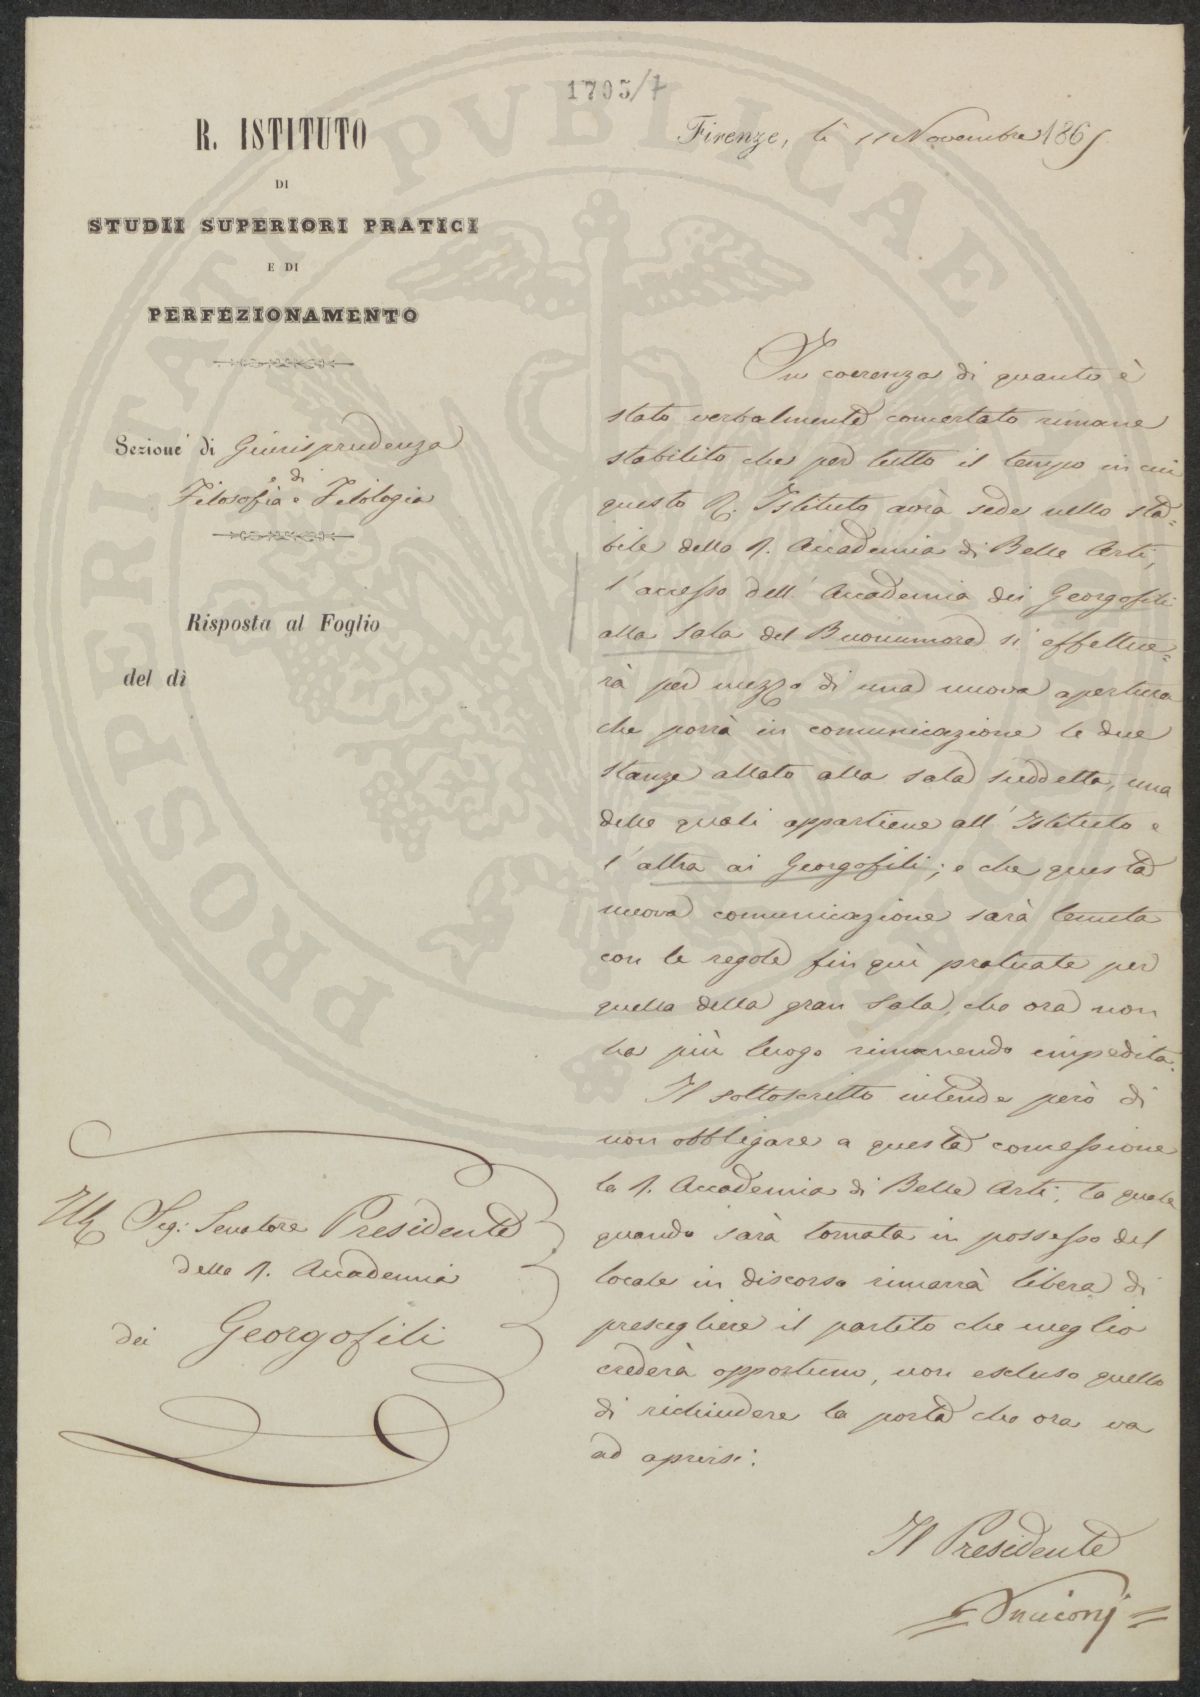 1705/7
R. ISTITUTO
DI
STUDII SUPERIORI PRATICI
E DI
PERFEZIONAMENTO
Firenze, li 11 Novembre 1865
Sezione di Giurisprudenza
e di
Filosofia e Filologia
Risposta al Foglio
del dì
In coerenza di quanto è
stato verbalmente concertato rimane
stabilito che per tutto il tempo in cui
questo R. Istituto avrà sede nello sta=
bile della R. Accademia di Belle Arti,
l'accesso dell'Accademia dei Georgofili
alla sala del Buonumore si effettue=
rà per mezzo di una nuova apertura
che porrà in comunicazione le due
stanze allato alla sala suddetta, una
delle quali appartiene all'Istituto e
l'altra ai Georgofili; e che questa
nuova comunicazione sarà tenuta
con le regole fin quì praticate per
quella della gran Sala, che ora non
ha più luogo rimanendo impedita.
Il sottoscritto intende però di
non obbligare a questa concessione
la R. Accademia di Belle Arti, la quale
quando sarà tornata in possesso del
locale in discorso rimarrà libera di
prescegliere il partito che meglio
crederà opportuno, non escluso quello
di richiudere la porta che ora va
ad aprirsi.
Ill. Sig: Senatore Presidente
della R. Accademia
dei Georgofili
Il Presidente
PROSPERITATI PVBLICAE